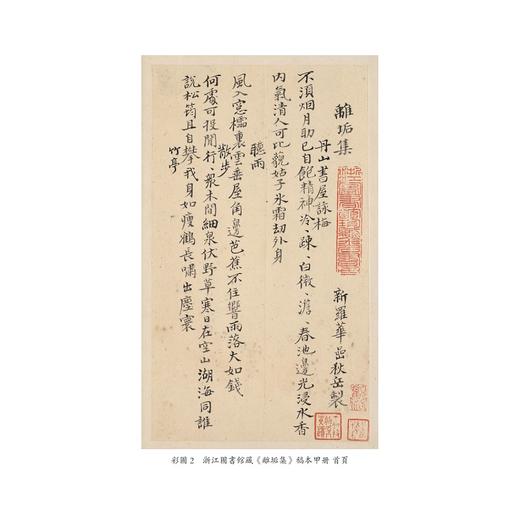 離垢集 新羅華嵒秋岳製
丹山書屋詠梅
不須烟月助已自飽精神泠、疎、白微、澹、春池邊光浸水香
内氣清人可比藐姑子氷霜刼外身
聽雨
風入窓櫺裏雲垂屋角邊芭蕉不住響雨落大如錢
散步
何處可投閒行、衆木間細泉伏野草寒日在空山湖海同誰
說松筠且自攀我身如瘦鶴長嘯出塵寰
竹亭
彩圖 2 浙江圖書館藏《離垢集》稿本甲册 首頁